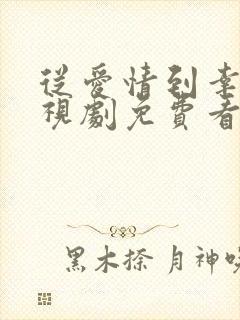 從愛情到幸
視劇免費看
黑木捺 月神